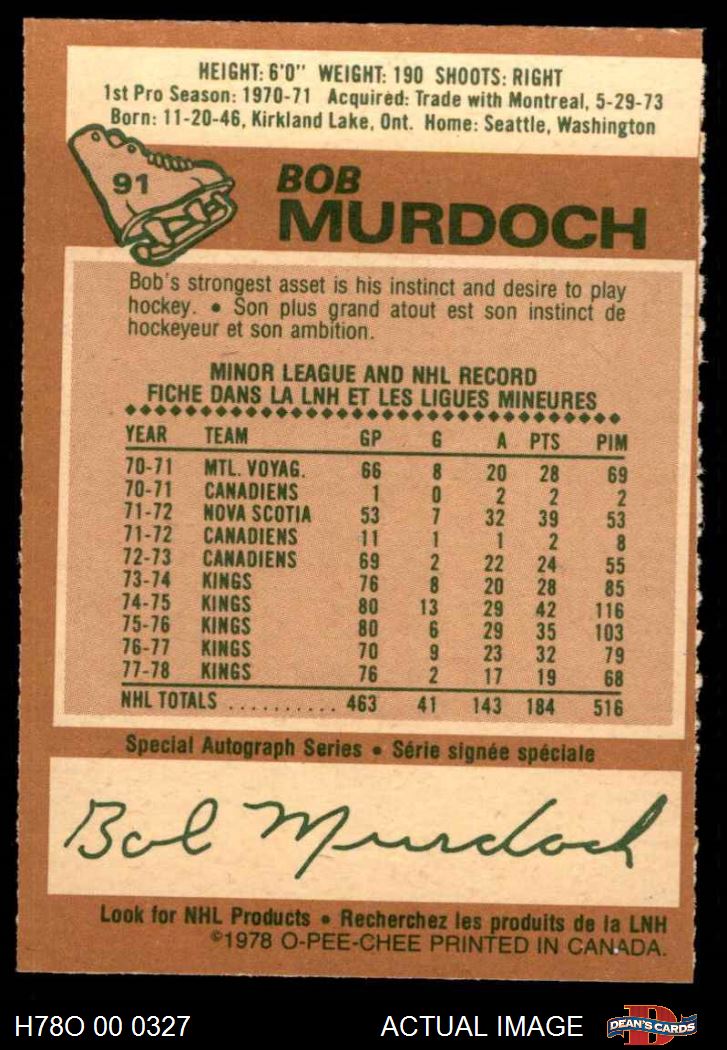 HEIGHT: 6'0" WEIGHT: 190 SHOOTS: RIGHT
1st Pro Season: 1970-71 Acquired: Trade with Montreal, 5-29-73
Born: 11-20-46, Kirkland Lake, Ont. Home: Seattle, Washington
91
BOB
MURDOCH
Bob's strongest asset is his instinct and desire to play
hockey. • Son plus grand atout est son instinct de
hockeyeur et son ambition.
MINOR LEAGUE AND NHL RECORD
FICHE DANS LA LNH ET LES LIGUES MINEURES
YEAR TEAM GP G A PTS PIM
70-71 MTL. VOYAG. 66 8 20 28 69
70-71 CANADIENS 1 0 2 2 2
71-72 NOVA SCOTIA 53 7 32 39 53
71-72 CANADIENS 11 1 1 2 8
72-73 CANADIENS 69 2 22 24 55
73-74 KINGS 76 8 20 28 85
74-75 KINGS 80 13 29 42 116
75-76 KINGS 80 6 29 35 103
76-77 KINGS 70 9 23 32 79
77-78 KINGS 76 2 17 19 68
NHL TOTALS .......... 463 41 143 184 516
Special Autograph Series • Série signée spéciale
Bob Murdoch
Look for NHL Products • Recherchez les produits de la LNH
©1978 O-PEE-CHEE PRINTED IN CANADA.
H78O 00 0327 ACTUAL IMAGE D DEAN'S CARDS